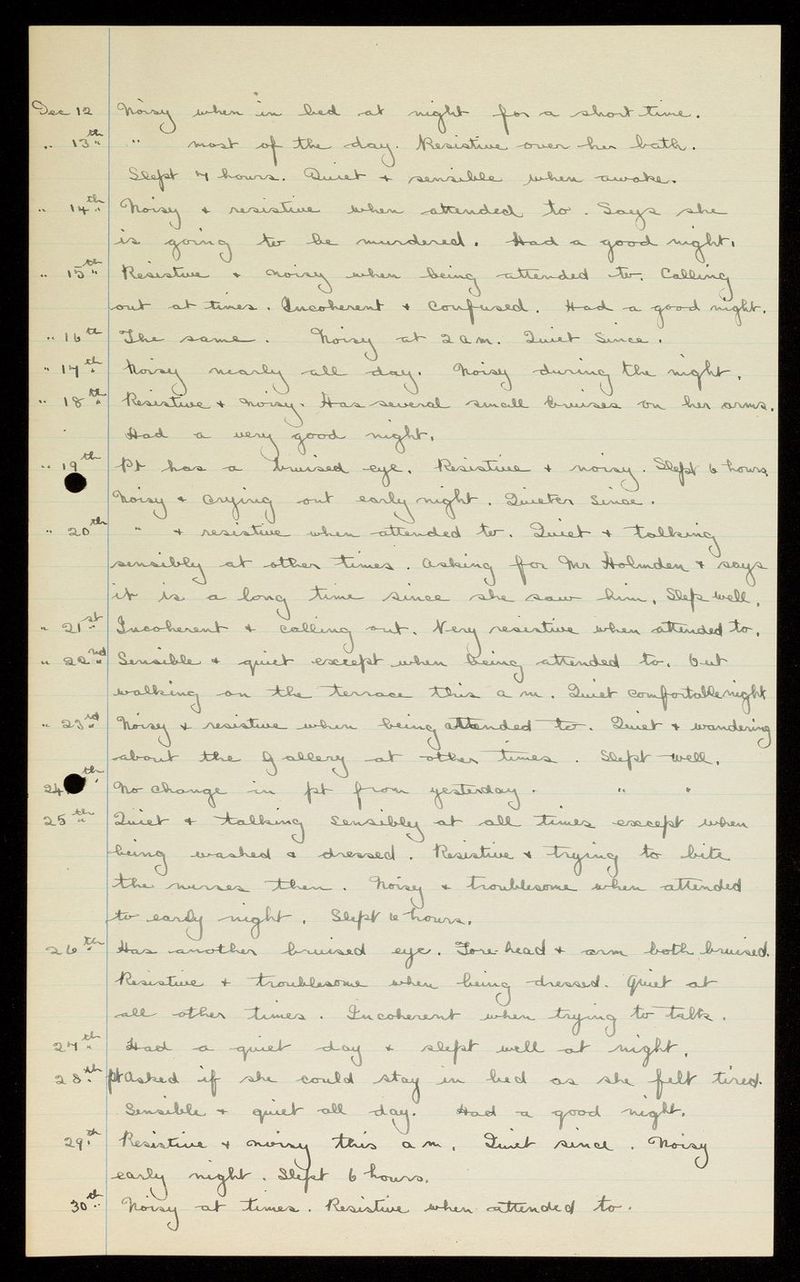 Dec 12 Noisy when in bed at night for a short time.
" 13th " most of the day. Resistive over her bath.
Slept 7 hours. Quiet & sensible when awake.
" 14th Noisy & resistive when attended to. Says she
is going to be murdered. Had a good night.
" 15th Resistive & noisy when being attended to. Calling
out at times. Incoherent & confused. Had a good night.
" 16th The same. Noisy at 2 a.m. Quiet since.
" 17th Noisy nearly all day. Noisy during the night.
" 18th Resistive & noisy. Has several small bruises on her arms.
Had a very good night.
" 19th Pt has a bruised eye. Resistive & noisy. Slept 6 hours.
Noisy & crying out early night. Quieter since.
" 20th " & resistive when attended to. Quiet & talking
sensibly at other times. Asking for Mr Holmden & says
it is a long time since she saw him. Slept well.
" 21st Incoherent & calling out. Very resistive when attended to.
" 22nd Sensible & quiet except when being attended to. Out
walking on the terrace this a m. Quiet comfortable night
" 23rd Noisy & resistive when being attended to. Quiet & wandering
about the Gallery at other times. Slept well.
24th No change in pt from yesterday. " "
25th Quiet & talking sensibly at all times except when
being washed & dressed. Resistive & trying to bite
the nurses then. Noisy & troublesome when attended
to early night. Slept 6 hours.
26th Has another bruised eye. Fore-head & arm both bruised.
Resistive & troublesome when being dressed. Quiet at
all other times. Incoherent when trying to talk.
27th Had a quiet day & slept well at night.
28th pt Asked if she could stay in bed as she felt tired.
Sensible & quiet all day. Had a good night.
29th Resistive & noisy this a m. Quiet since. Noisy
early night. Slept 6 hours.
30th Noisy at times. Resistive when attended to.